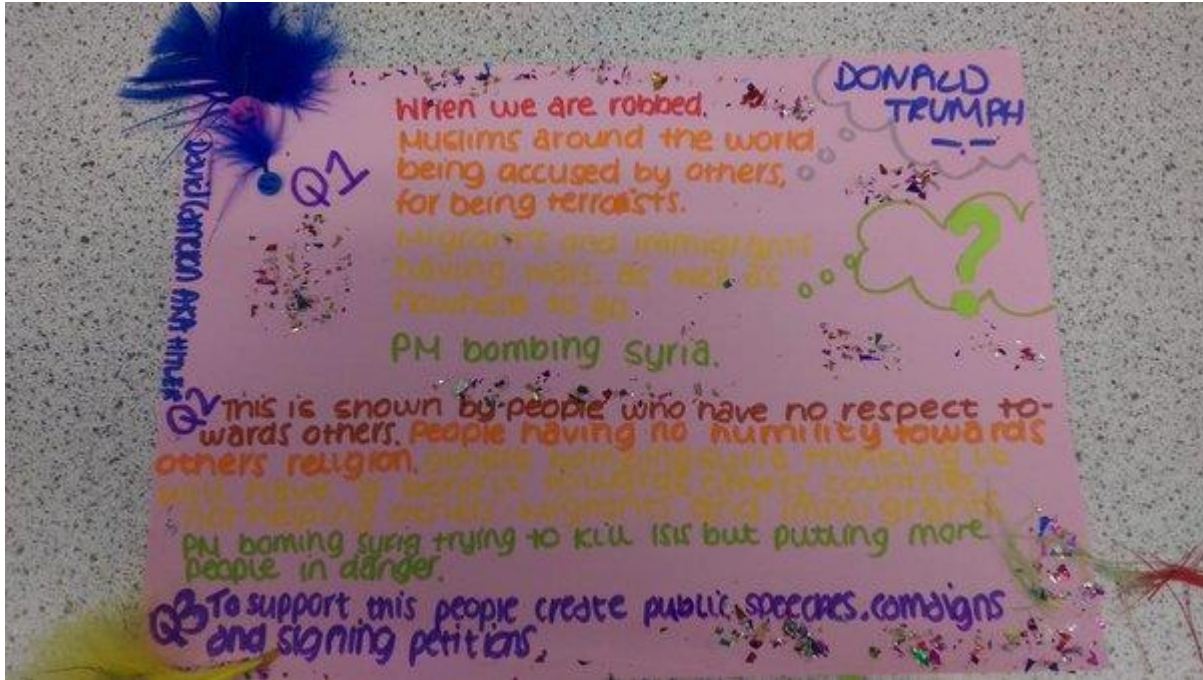 DONALD
TRUMPH
David Cameron AKA HITLER
Q1
When we are robbed.
Muslims around the world
being accused by others,
for being terroists.
Migrants and immigrants
having wars, as well as
nowhere to go.
PM bombing Syria.
?
Q2 This is shown by people who have no respect to-
wards others. People having no humility towards
others religion. Others bombing syria thinking it
will have a benefit towards others countries
not helping others migrants and immigrants
PM boming syria trying to kill Isis but putting more
people in danger.
Q3 To support this people create public speeches. comaigns
and signing petitions.